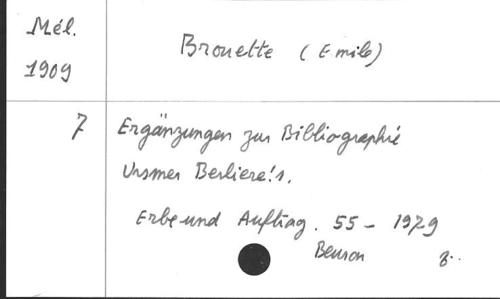 Mél.
1909
Brouette (Emile)
7
Ergänzungen zur Bibliographie
Ursmer Berliere's.
Erbe und Auftrag. 55 - 1979
Beuron